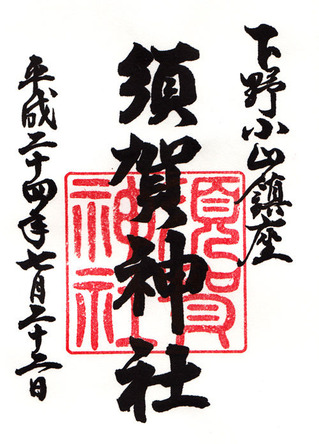 下野小山鎮座
須賀神社
須賀神社
平成二十四年七月二十二日